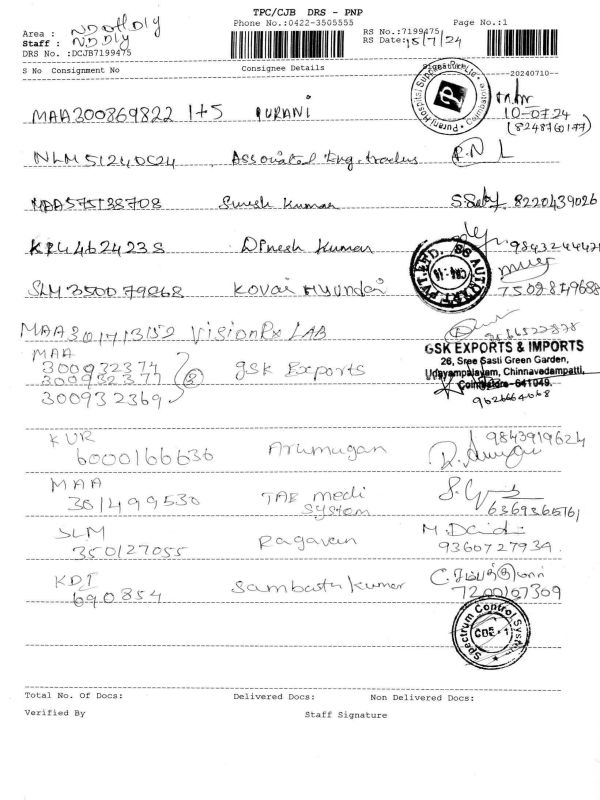 TPC/CJB DRS - PNP
Area : NDoffDly Phone No.:0422-3505555 Page No.:1
Staff : NDDly RS No.:7199475
DRS No. :DCJB7199475 RS Date:15/7/24
S No Consignment No Consignee Details Sign&Mobile
20240710--
MAA300869822 1+5 PURANI
Purani Hospital Supplies
P
Coimbatore
10-07-24
(8248760177)
Associated Eng. traders
MAA575138708 Suresh Kumar 8220439026
KRL4624235 Dinesh Kumar
SLM350079868 Kovai Hyundai 7502849688
MAA301713152 VisionRx LAB
MAA
300932374
300932377 (3) GSK Exports
300932369
GSK EXPORTS & IMPORTS
26, Sree Sasti Green Garden,
Udayampalayam, Chinnavedampatti,
Coimbatore-641049.
9626664668
KUR
6000166636 Arumugan 9843919624
MAA
301499530 TAB medi
System 6369365161
SLM
350127055 Ragavan 9360727934.
KDI
690854 Sambath Kumar 7200107309
Spectrum Control System
CBE - 1
Total No. Of Docs: Delivered Docs: Non Delivered Docs:
Verified By Staff Signature